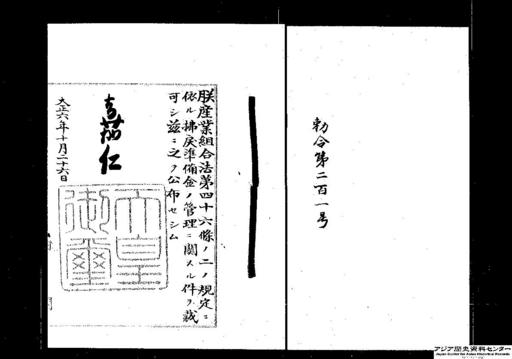 勅令第二百一号
朕産業組合法第四十六條ノ二ノ規定ニ
依ル拂戻準備金ノ管理ニ關スル件ヲ裁
可シ茲ニ之ヲ公布セシム
嘉仁
天皇
御璽
大正六年十月二十六日
アジア歴史資料センター
Japan Center for Asian Historical Records